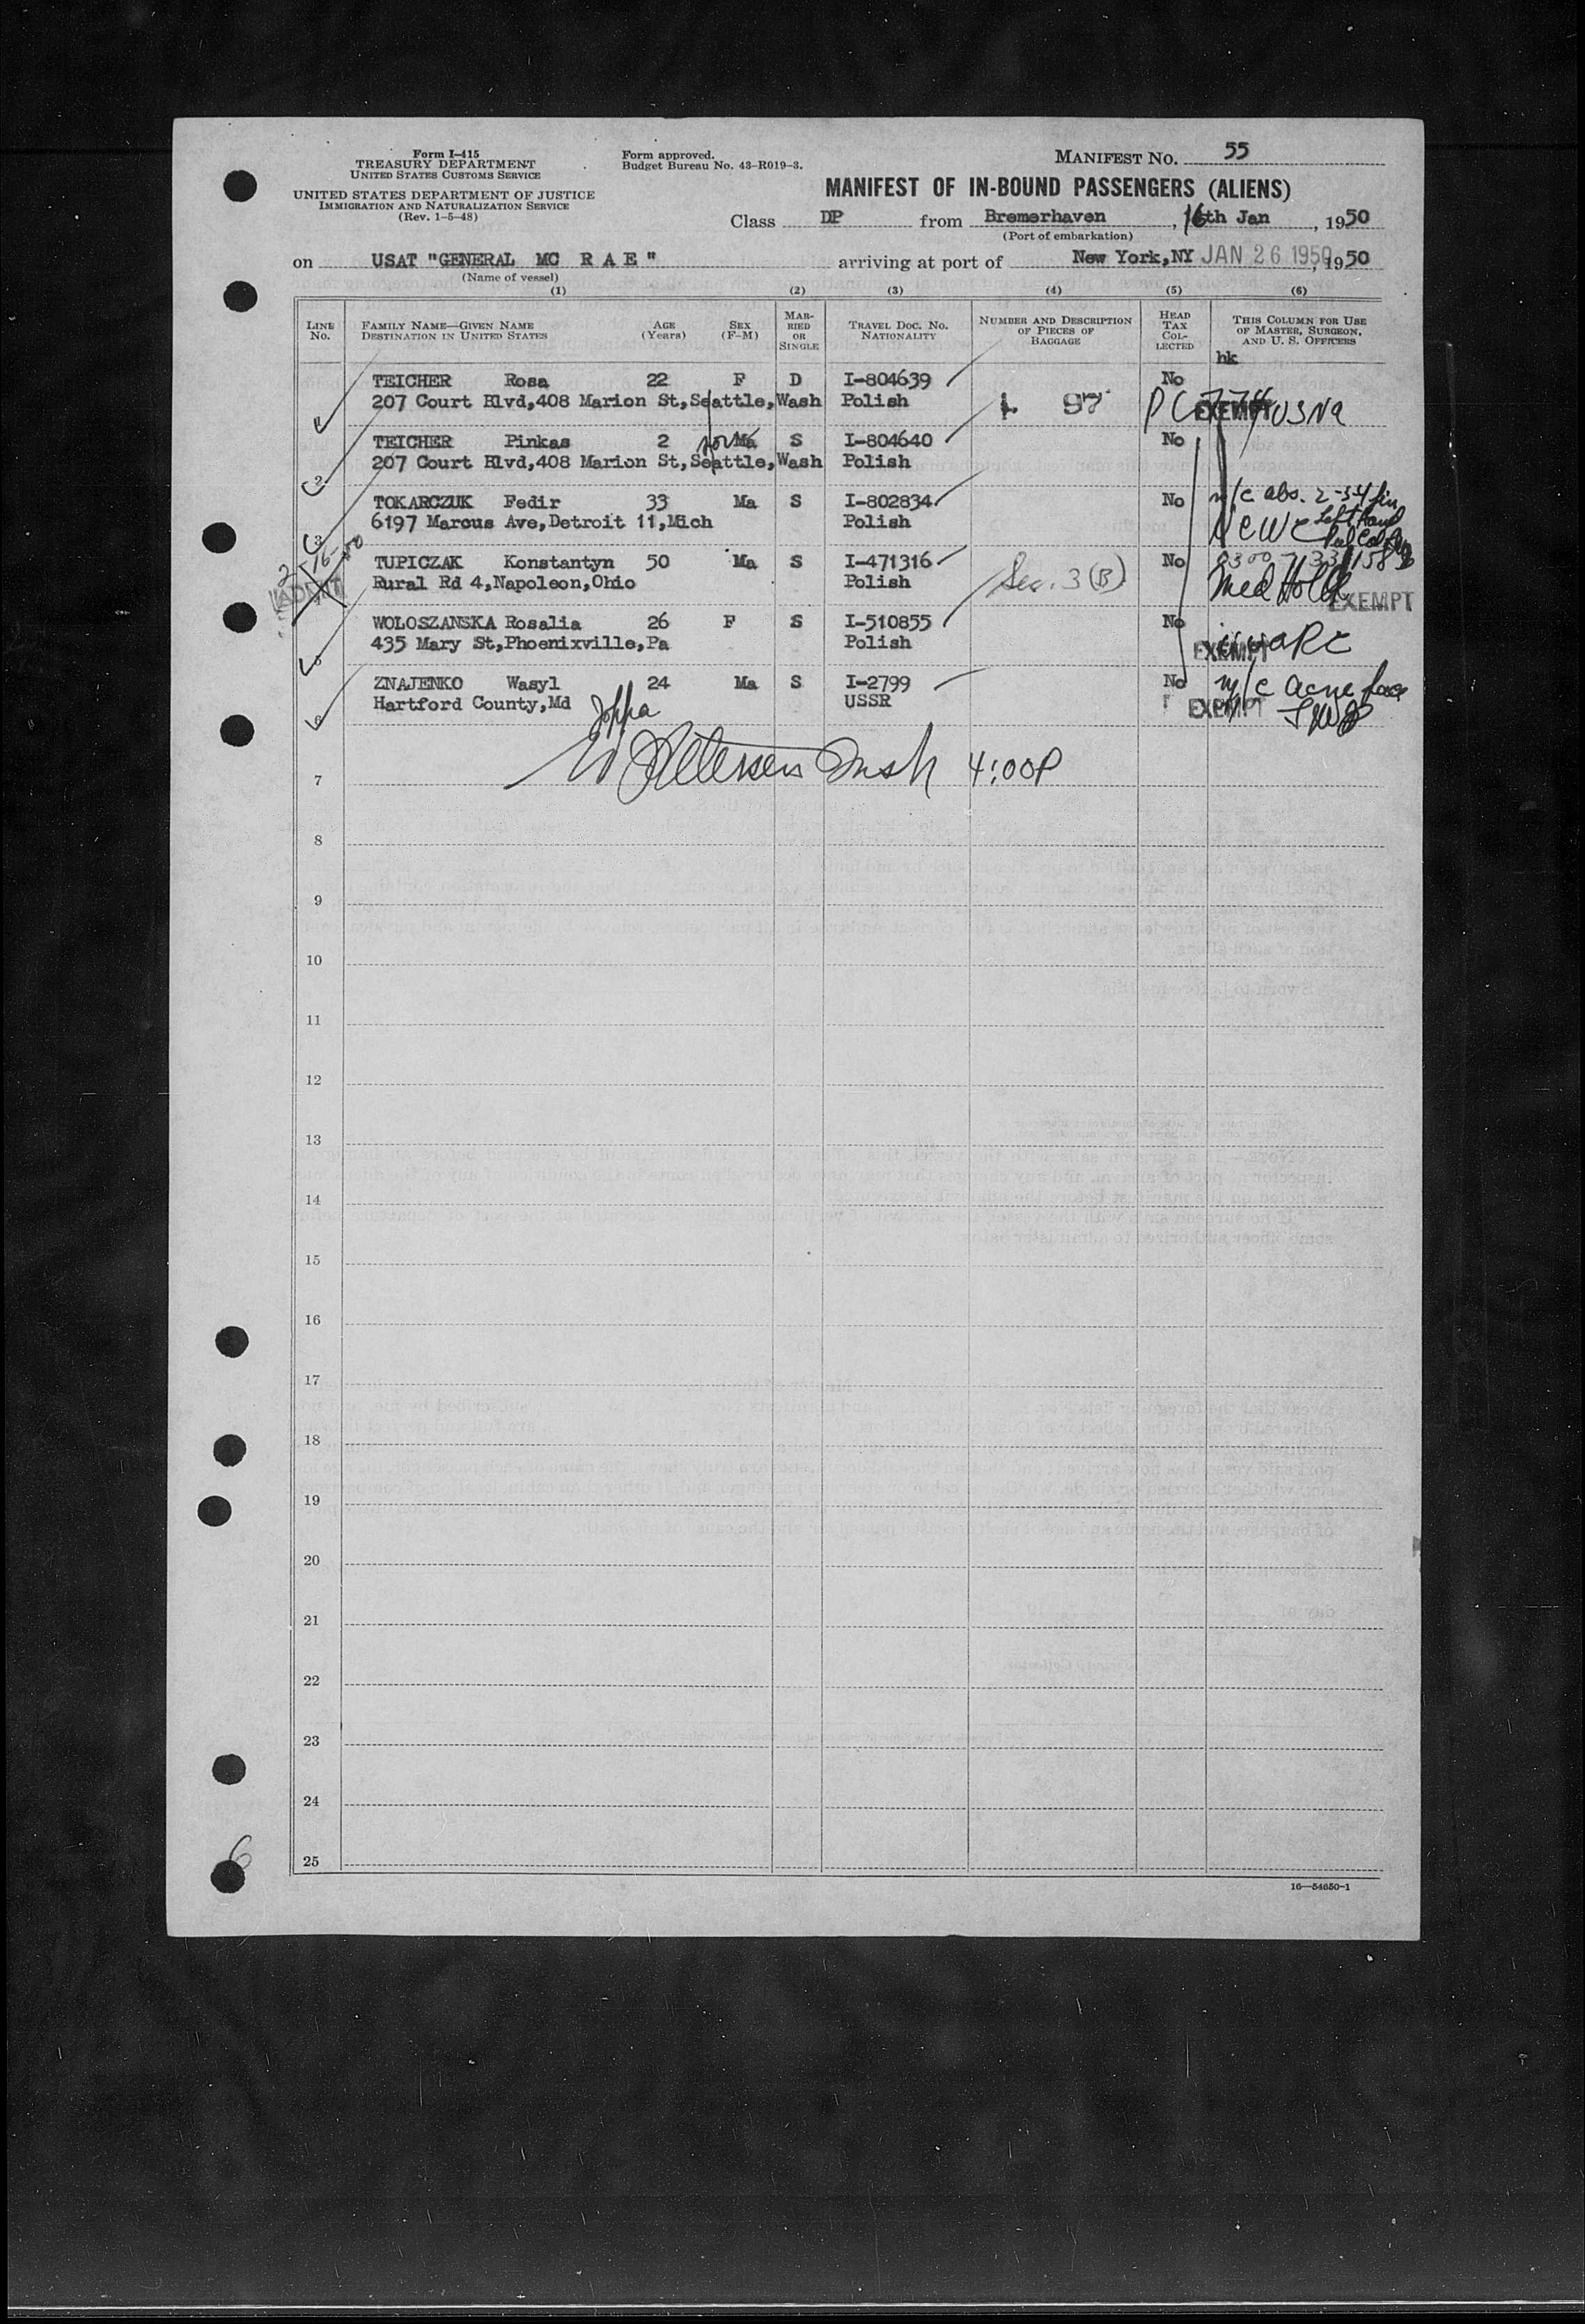 Form I-415
TREASURY DEPARTMENT
UNITED STATES CUSTOMS SERVICE
UNITED STATES DEPARTMENT OF JUSTICE
IMMIGRATION AND NATURALIZATION SERVICE
(Rev. 1-5-48)
Form approved.
Budget Bureau No. 43-R019-3.
MANIFEST NO. 55
MANIFEST OF IN-BOUND PASSENGERS (ALIENS)
Class DP from Bremerhaven, 16th Jan, 1950
(Port of embarkation)
on USAT "GENERAL MC R A E" arriving at port of New York,NY JAN 26 1950, 1950
(Name of vessel)
(1) (2) (3) (4) (5) (6)
LINE No. FAMILY NAME—GIVEN NAME DESTINATION IN UNITED STATES AGE (Years) SEX (F-M) MARRIED OR SINGLE TRAVEL DOC. NO. NATIONALITY NUMBER AND DESCRIPTION OF PIECES OF BAGGAGE HEAD TAX COLLECTED THIS COLUMN FOR USE OF MASTER, SURGEON, AND U. S. OFFICERS
hk
TEICHER Rosa 22 F D I-804639 No
207 Court Blvd,408 Marion St,Seattle,Wash Polish 97 EXEMPT USNA
2 TEICHER Pinkas 2 Ma S I-804640 No
207 Court Blvd,408 Marion St,Seattle,Wash Polish
3 TOKARCZUK Fedir 33 Ma S I-802834 No abs. Left Hand
6197 Marcus Ave,Detroit 11,Mich Polish NCWC
ADMIT TUPICZAK Konstantyn 50 Ma S I-471316 Sec. 3(B) No
Rural Rd 4,Napoleon,Ohio Polish Med Hold EXEMPT
WOLOSZANSKA Rosalia 26 F S I-510855 No
435 Mary St,Phoenixville,Pa Polish EXEMPT
ZNAJENKO Wasyl 24 Ma S I-2799 No acne face
Hartford County,Md Joppa USSR EXEMPT
Petersen Insp 4:00P
7
8
9
10
11
12
13
14
15
16
17
18
19
20
21
22
23
24
25
6
16—54650-1